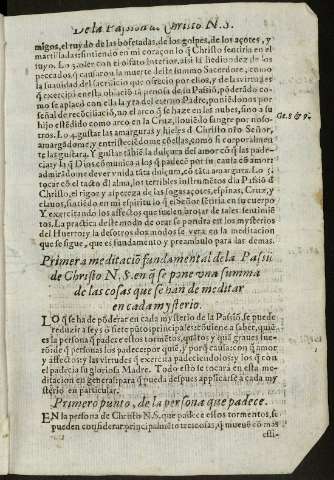 De la Passion de Christo N.S.
migos, el ruydo de las bofetadas, de los golpes, de los açotes, y
martilladas sintiendo en mi coraçon lo q̃ Christo sentiria en el
suyo. Lo 3. oler con el olfato interior, assi la hediondez de los
peccados, q̃ causaron la muerte deste summo Sacerdote, como
la suauidad del sacrificio que ofrecio por ellos, y de las virtudes
q̃ exercitò en ella
mo se aplacò con ella la yra del eterno Padre, poniẽdonos por
señal de recõciliaciõ, no el arco q̃ se haze en las nubes, sino a su
hijo estẽdido como arco en la Cruz, llouiẽdo sangre por noso-
tros. Lo 4. gustar las amarguras y hieles d̃ Christo nr̃o Señor,
Ge. 8. & 9.
amargãdome, y entristeciẽdome cõ ellas, como si corporalmen-
te las gustara. Y gustar tãbiẽ la dulçura del amor cõ q̃ las pade-
cia, y la q̃ Dios comunica a los q̃ padecẽ por su causa
admirãdome de ver vnida tãta dulçura, cõ tãta amargura. Lo 5.
tocar cõ el tacto dl alma, los terribles instrumẽtos dla Passiõ d̃
Christo, el rigor y aspereza de las sogas, açotes, espinas, Cruz, y
clauos, sintiẽdo en mi espiritu lo q̃ el Señor sẽtiria en su cuerpo
Y exercitando los affectos que suelen brotar de tales sentimiẽ
tos. La practica deste modo de orar se pondra en los mysterios
del Huerto: y la de sotros dos modos se vera en la meditacion
que se sigue, que es fundamento y preambulo para las demas.
Primera meditaciõ fundamental de la Passiõ
de Christo N.S. en q̃ se pone vna summa
de las cosas que se hã de meditar
en cada mysterio.
LO q̃ se ha de põderar en cada mysterio de la Passiõ, se puede
reduzir a seys ó siete pũtos principales: cõuiene a saber, quiẽ
es la persona q̃ padece estos tormẽtos, quãtos y quã graues fue-
rõ: de q̃ personas los padece: por quiẽ, y porq̃ causa: con q̃ amor
y affectos: y las virtudes q̃ exercita padeciendolos: y los q̃ con
el padecia su gloriosa Madre. Todo esto se tocara en esta me-
ditacion en general: para q̃ pueda despues applicarse a cada my
sterio en particular.
Primero punto, de la persona que padece.
EN la persona de Christo N.S. que padece estos tormentos, se
pueden considerar principalmẽte tres cosas, q̃ mueuẽ cõ mas
effi-